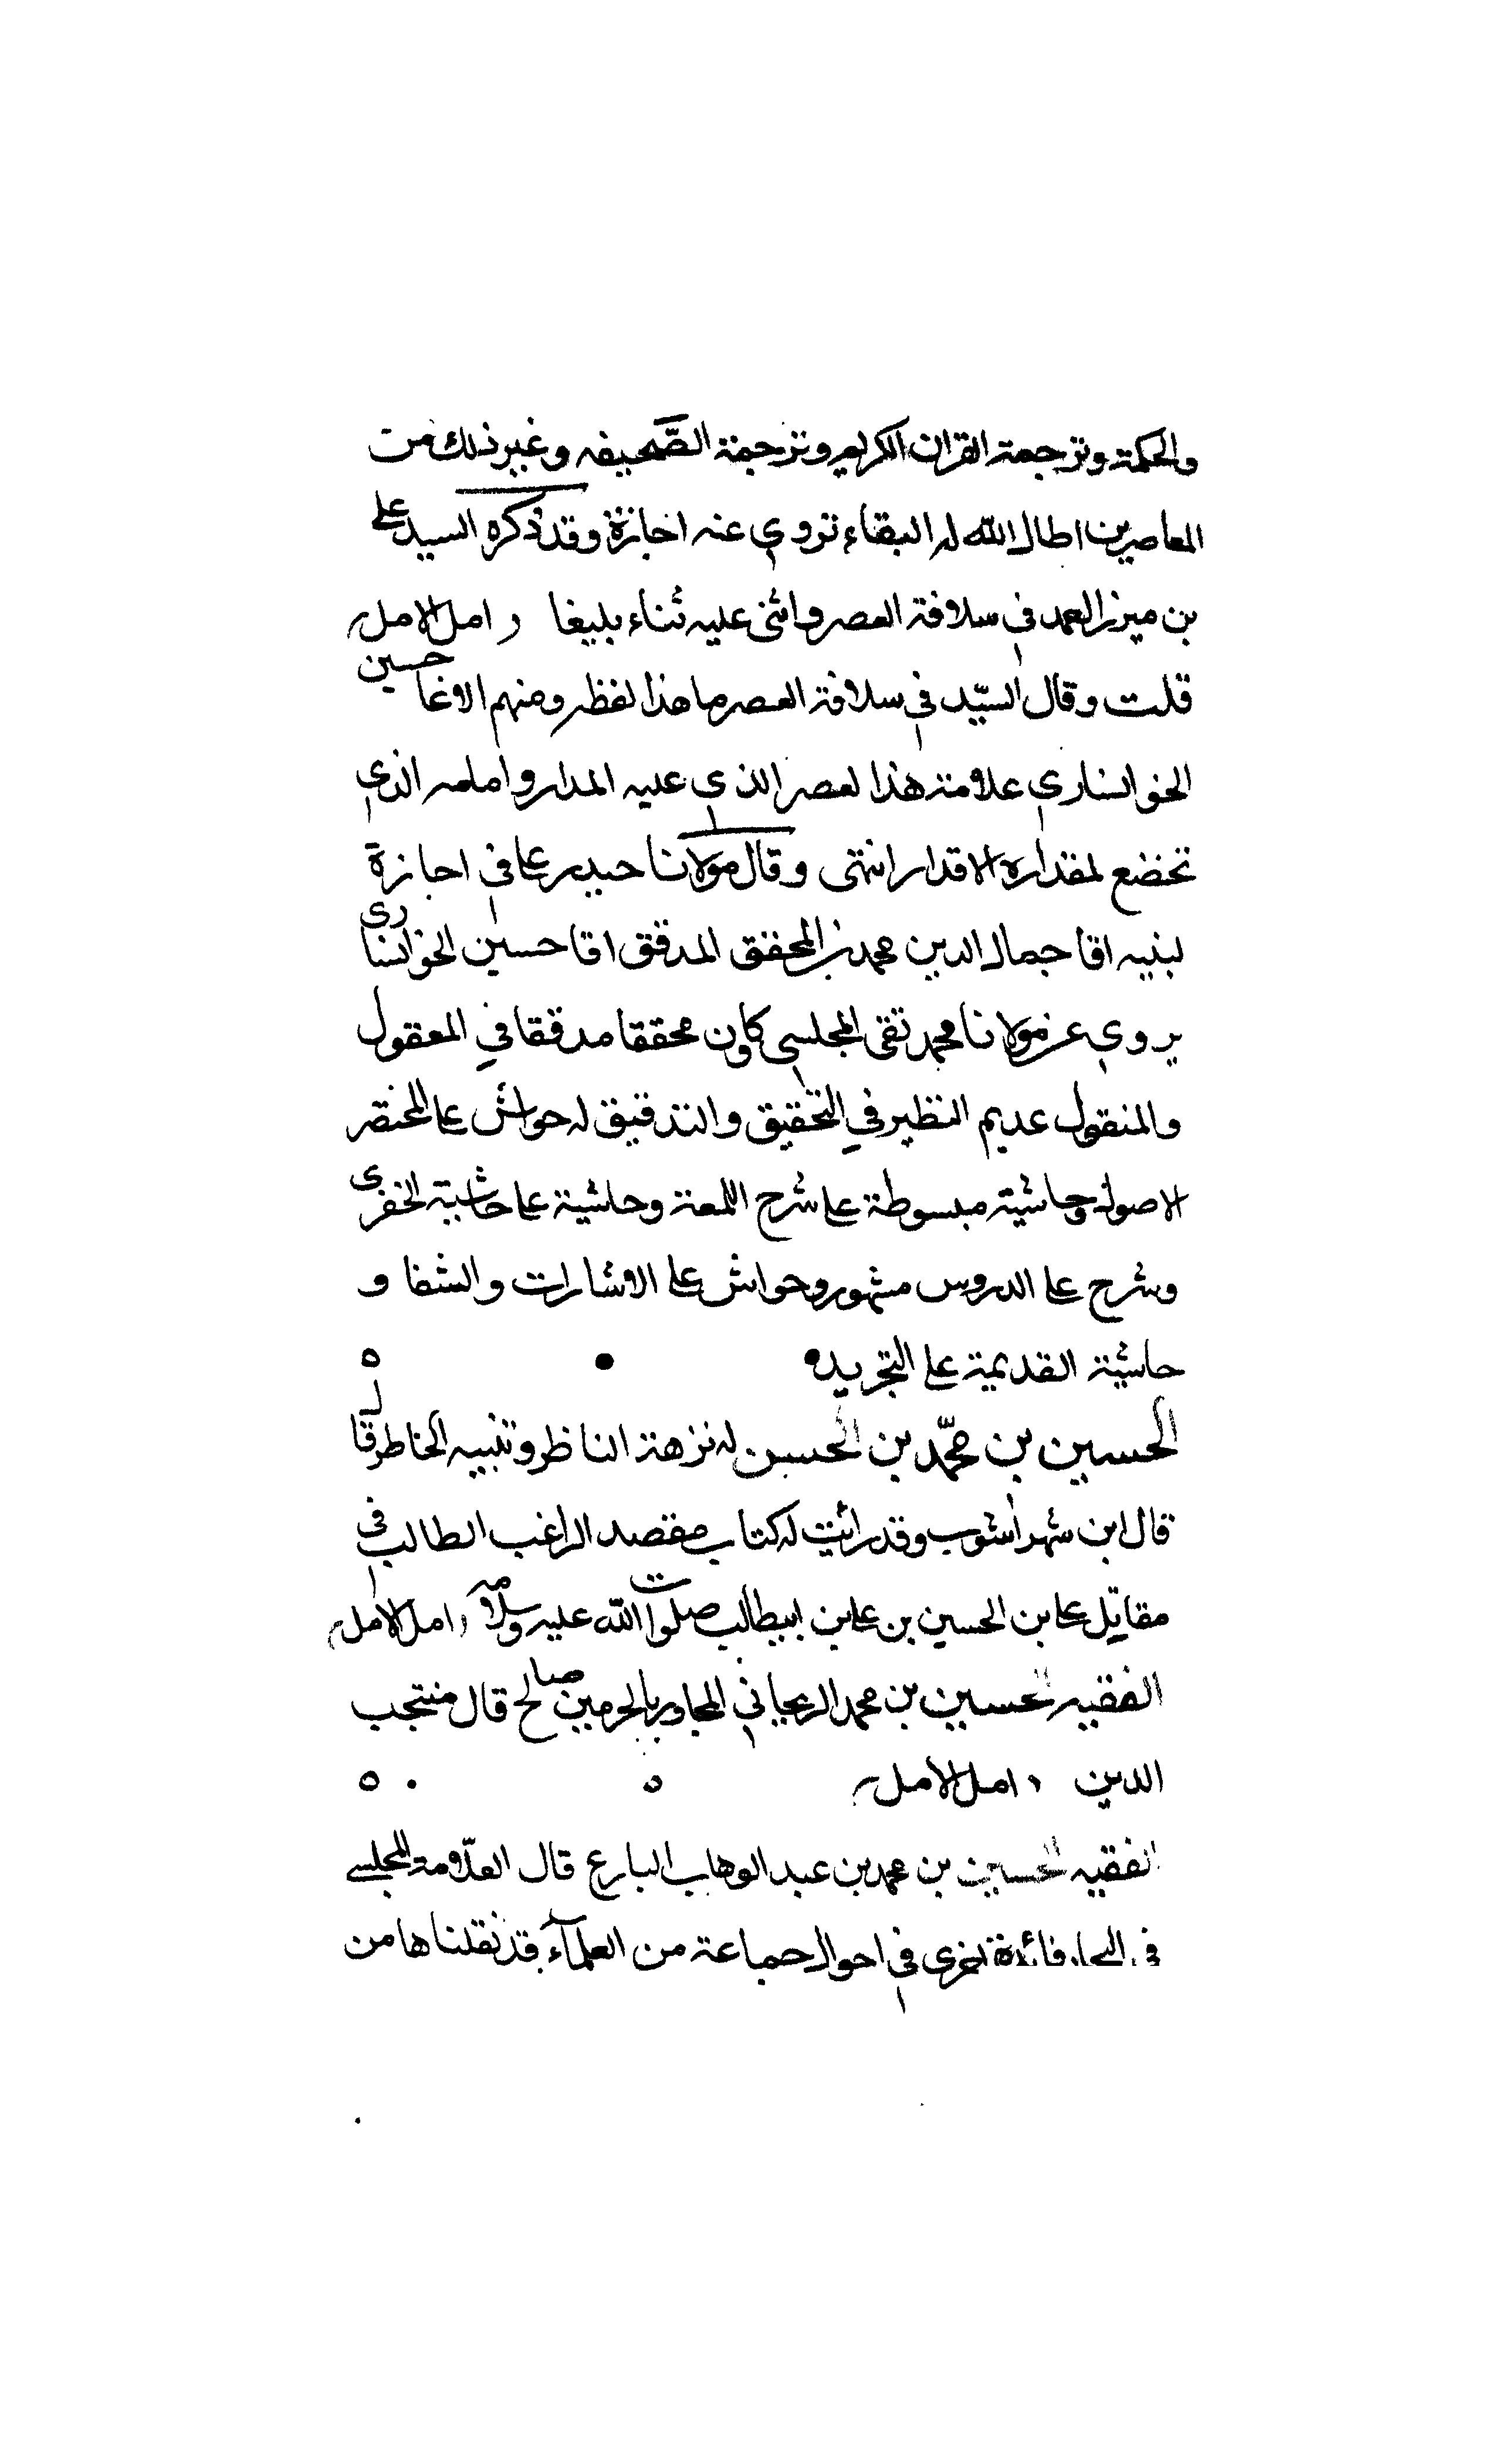 والحكمة وترجمة القران الكريم وترجمة الصّحيفه وغير ذلك من
المعاصرين اطال الله له البقاء نروى عنه اجازة وقد ذكره السيد على
بن ميرزا احمد في سلافة العصر واثنى عليه ثناء بليغا ر امل الامل
قلت وقال السيّد في سلافة العصر ما هذا لفظه ومنهم الاغا حسين
الخوانسارى علامة هذا لعصر الذى عليه المدار وامامه الذى
تخضع لمقداره الاقدار انتهى وقال مولانا حيدر على في اجازة
لبنيه اقا جمال الدين محمد بن المحقق المدقق اقا حسين الخوانسارى
يروى عن مولانا محمد تقى المجلسى كان محققا مدققا في المعقول
والمنقول عديم النظير في التحقيق والتدقيق له حواش على المختصر
الاصول وحاشية مبسوطة على شرح اللمعة وحاشية على حاشية الخفرى
وشرح على الدروس مشهور وحواش على الاشارات والشفا و
حاشية القديمة على التجريد
الحسين بن محمّد بن الحسين له نزهة الناظر وتنبيه الخاطر قال
قال ابن شهراشوب وقد رايت له كتاب مقصد الراغب الطالب في
مقاتل على بن الحسين بن على بن ابيطالب صلوات الله عليه وسلامه ر امل الامل
الفقيه الحسين بن محمد الريحاني المجاور بالحرمين صالح قال منتجب
الدين ر امل الامل
الفقيه الحسين بن محمد بن عبد الوهاب البارع قال العلّامة المجلسي
في البحار فائدة اخرى في احوال جماعة من العلمآء قد نقلناها من